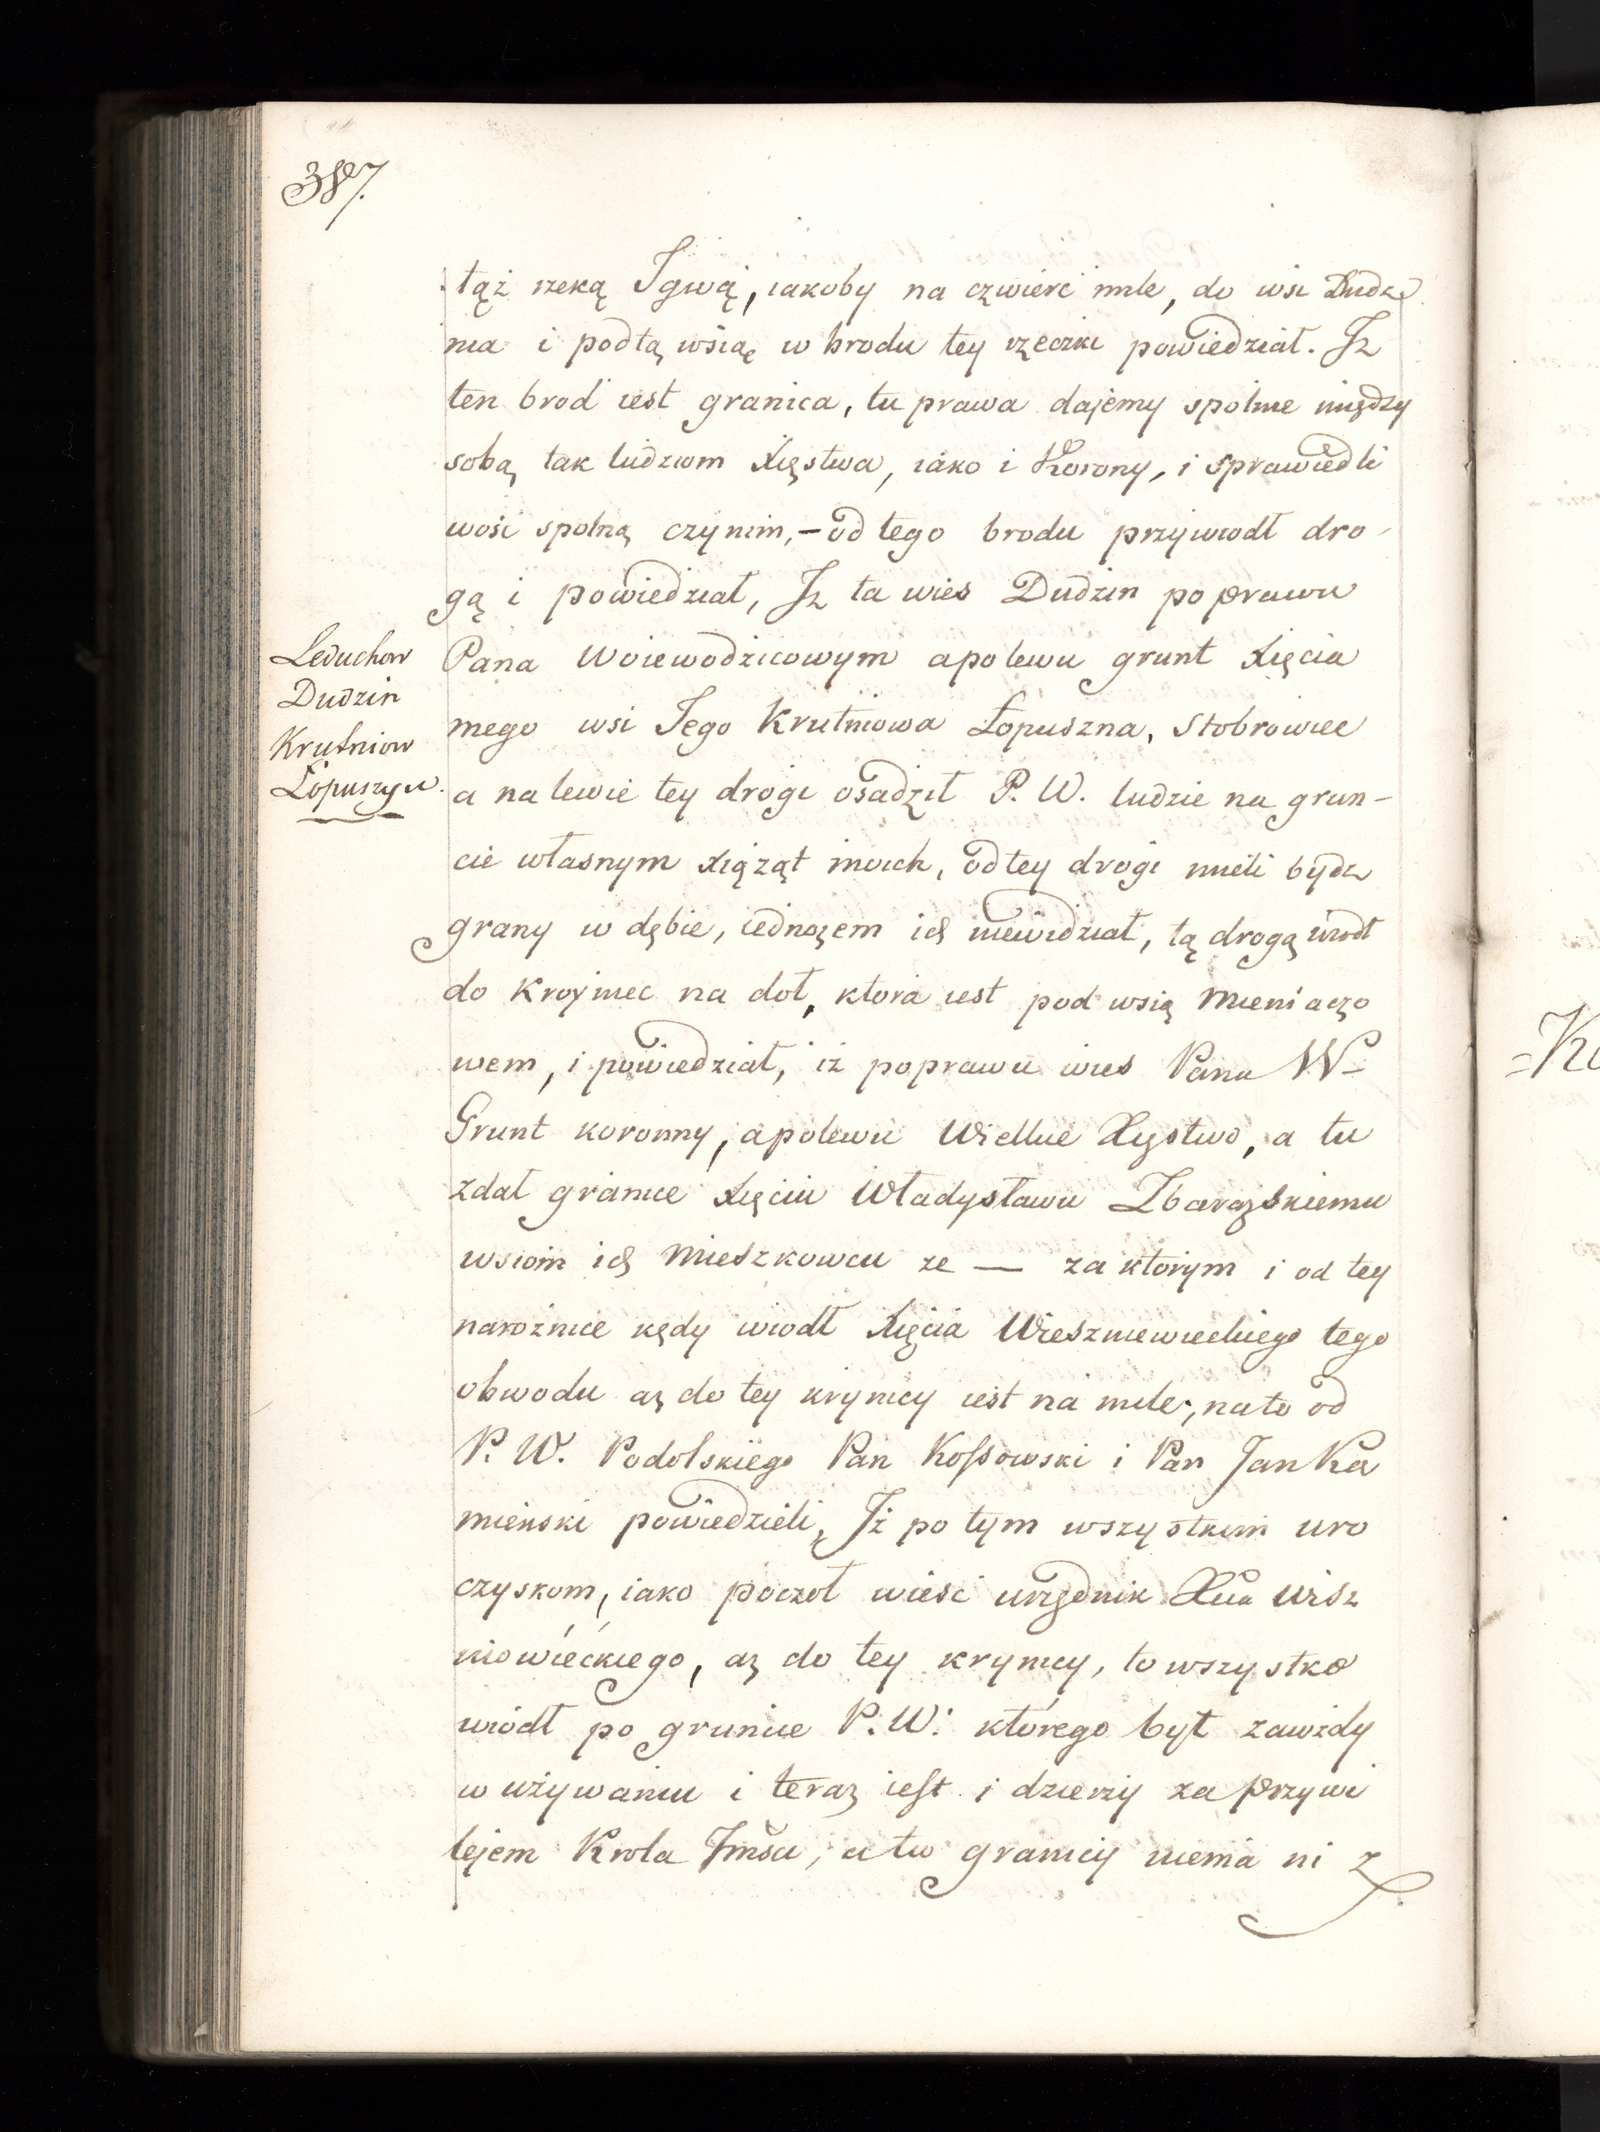 387.
tąż rzeką Igwą, iakoby na czwierć mile, do wsi Dudz
nia i podtą wsią w brodu tey rzeczki powiedział. Iz
ten brod iest granica, tu prawa dajemy spólnie między
sobą tak ludziom Xięstwa, iáko i Korony, i sprawiedli
wość spolną czynim, – od tego brodu przywiodł dro
gą i powiedział, Iz ta wies Dudzin po prawu
Pana Woiewodzicowym apolewu grunt Xięcia
mego wsi Jego Krutniowa Łopuszna, Stobrowiec
a na lewie tey drogi osadził P. W. ludzie na grun-
cie własnym Xiążąt moich, od tey drogi mieli bydz
grany w dębie, iednazem ich niewidział, tą drogą wiodł
do Kroyniec na doł, ktora iest pod wsią Mieniaczo
wem, i powiedział, iż poprawu wies Pana W
Grunt koronny, apolewu Wielkie Xięstwo, a tu
zdał granice Xięciu Władysławu Zbarazskiemu
wsiom ich Mieszkowcu ze — za ktorym i od tey
narożnice kędy wiodł Xięcia Wieszniewieckiego tego
obwodu az do tey krynicy iest na mile, nato od
P. W. Podolskiego Pan Kossowski i Pan Jan Ka
mieński powiedzieli, Iż po tym wszystkim uro
czyskom, iako poczoł wieść urzędnik Xcia Wisz
niowiećkiego, az do tey krynicy, to wszystko
wiódł po grunice P. W. którego był zawżdy
w używaniu i teraz iest i dzierży za przywi
lejem Krola Jmści, a tu granicy niemá ni z
Leduchow
Dudzin
Krutniow
Łopuszyn.